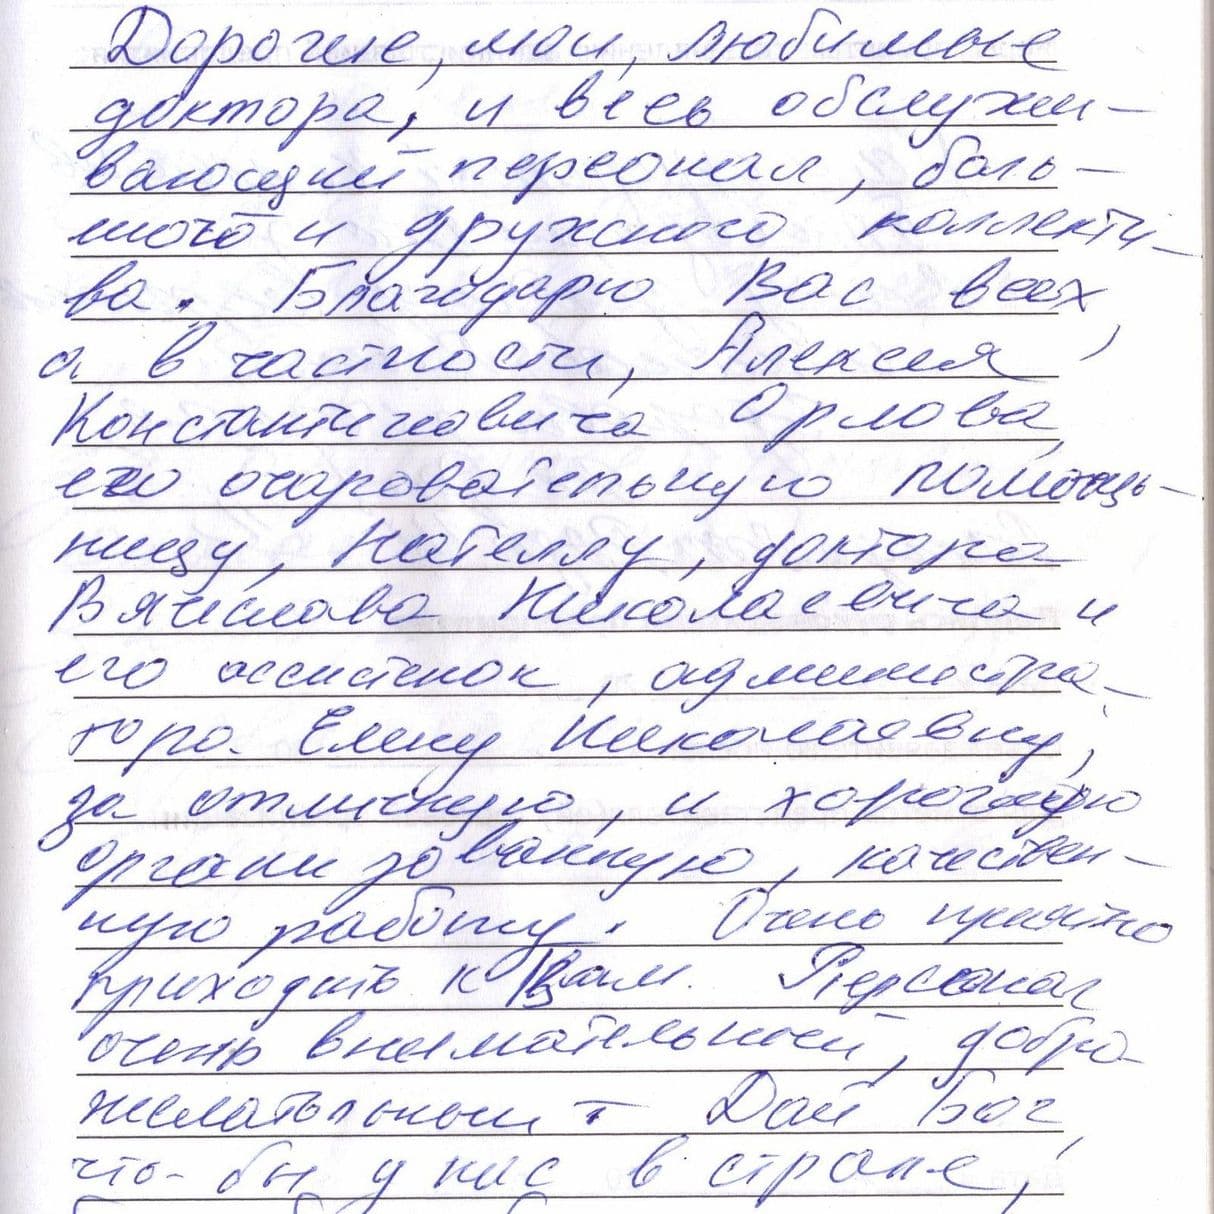 Дорогие, мои, любимые
доктора, и весь обслужи-
вающий персонал, боль-
шого и дружного коллекти-
ва. Благодарю Вас всех,
а в частности, Алексея
Константиновича Орлова,
его очаровательную помощь-
ницу, Нателлу, доктора
Вячеслава Николаевича и
его ассистенок, администра-
тора Елену Николаевну,
за отличную, и хорошую
организованную, качествен-
ную работу. Очень приятно
приходить к Вам. Персонал
очень внимательный, добро-
желательный - Дай Бог,
что-бы у нас в стране,